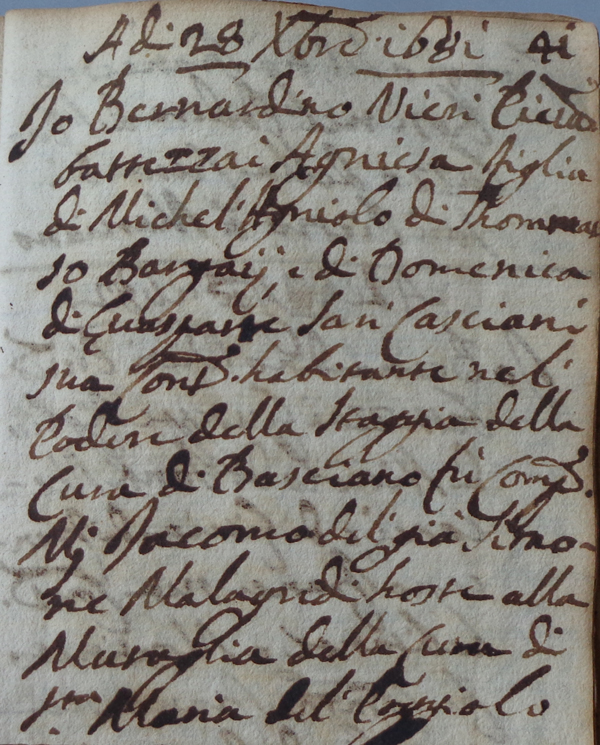 A di 28 Xbre 1681 41
Io Bernardino Vieri
battezzai Agniesa figlia
di Michel'Agniolo di Thommas
so Bargalij, e di Domenica
di Guasparre San Casciani
sua Cons. habitante nel'
Podere della Staggia della
Cura di Basciano fu Comp.
Mj Jacomo del' già Simo-
ne Malagridi hoste alla
Muraglia della Cura di
Sta Maria del'